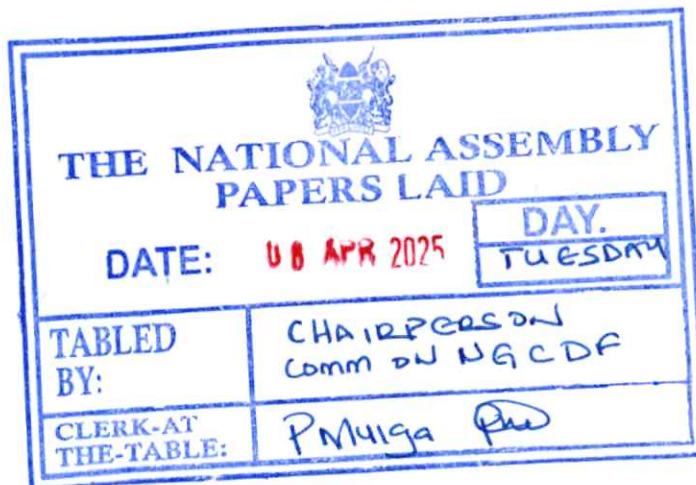 THE NATIONAL ASSEMBLY
PAPERS LAID
DATE: 08 APR 2025
DAY.
TUESDAY
TABLED
BY:
CHAIRPERSON
Comm ON NGCDF
CLERK-AT
THE-TABLE: